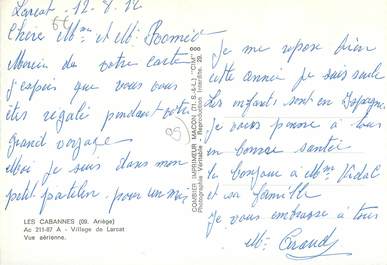 Larcat - 12-8-72
Chère Mme et Mr
Merci de votre carte
j'espère que vous vous
êtes régalé pendant votre
grand voyage
Moi je suis dans mon
petit patelin pour un mois
LES CABANNES (09. Ariège)
Ac 211-87 A - Village de Larcat
Vue aérienne.
COMBIER IMPRIMEUR MACON (71. S.-&-L.) "CIM"
Photographie Véritable - Reproduction Interdite.
09
Je me repose bien
cette année je suis seule
Les enfants sont en Espagne
Je vous pense à tous
en bonne santé
le bonjour à Mme Vidal
et sa famille
Je vous embrasse à tous
Mme